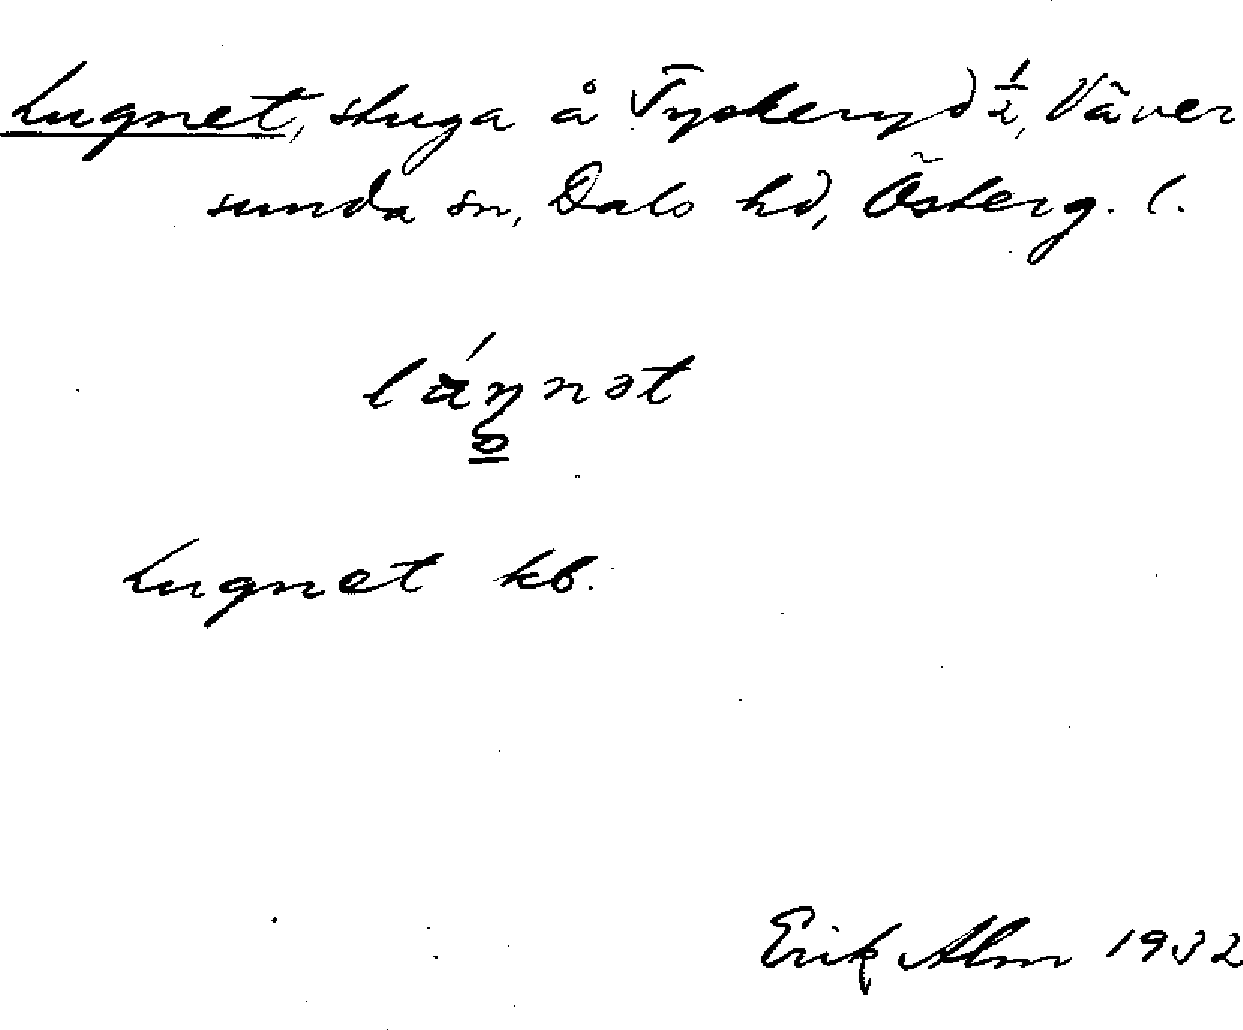 Lugnet, stuga å Tyskeryd 1/2, Väver
sunda sn, Dals hd, Österg. l.
Lugnet kb.
Erik Alm 1932